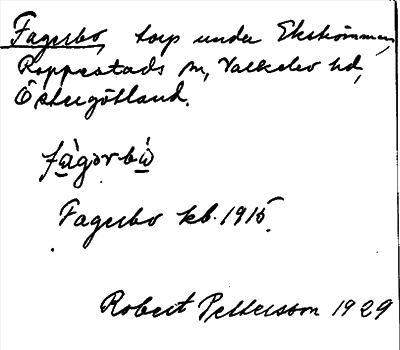 Fagerbo, torp under Ekströmmen,
Rappestads sn, Valkebo hd,
Östergötland.
fàgərbò
Fagerbo kb. 1915.
Robert Pettersson 1929